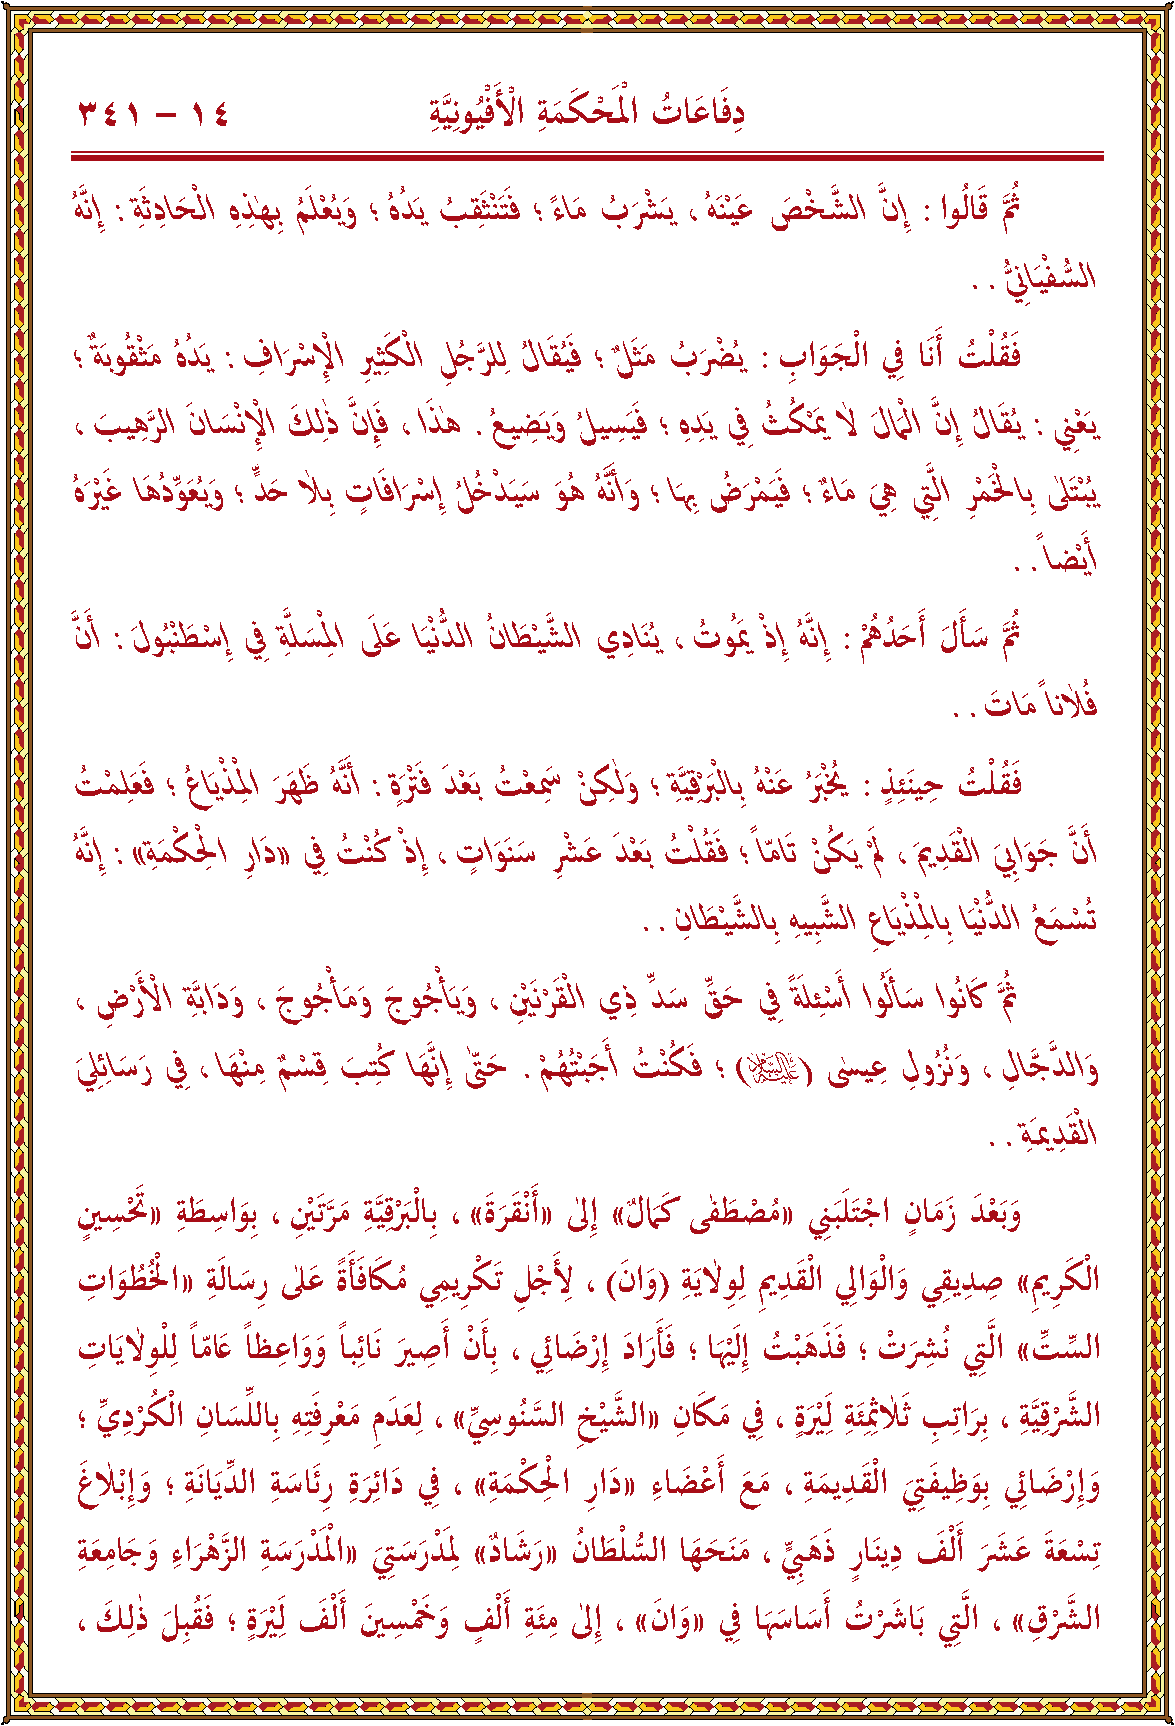 دِفَاعَاتُ الْمَحْكَمَةِ الْأَفْيُونِيَّةِ ١٤ – ٣٤١
ثُمَّ قَالُوا : إِنَّ الشَّخْصَ عَيْنَهُ ، يَشْرَبُ مَاءً ؛ فَتَنْثَقِبُ يَدُهُ ؛ وَيُعْلَمُ بِهٰذِهِ الْحَادِثَةِ : إِنَّهُ
السُّفْيَانِيُّ . .
فَقُلْتُ أَنَا فِي الْجَوَابِ : يُضْرَبُ مَثَلٌ ؛ فَيُقَالُ لِلرَّجُلِ الْكَثِيرِ الْإِسْرَافِ : يَدُهُ مَثْقُوبَةٌ ؛
يَعْنِي : يُقَالُ إِنَّ الْمَالَ لَا يَمْكُثُ فِي يَدِهِ ؛ فَيَسِيلُ وَيَضِيعُ . هٰذَا ، فَإِنَّ ذٰلِكَ الْإِنْسَانَ الرَّهِيبَ ،
يُبْتَلٰى بِالْخَمْرِ الَّتِي هِيَ مَاءٌ ؛ فَيَمْرَضُ بِهَا ؛ وَأَنَّهُ هُوَ سَيَدْخُلُ إِسْرَافَاتٍ بِلَا حَدٍّ ؛ وَيُعَوِّدُهَا غَيْرَهُ
أَيْضاً . .
ثُمَّ سَأَلَ أَحَدُهُمْ : إِنَّهُ إِذْ يَمُوتُ ، يُنَادِي الشَّيْطَانُ الدُّنْيَا عَلَى الْمِسَلَّةِ فِي إِسْطَنْبُولَ : أَنَّ
فُلَاناً مَاتَ . .
فَقُلْتُ حِينَئِذٍ : يُخْبَرُ عَنْهُ بِالْبَرْقِيَّةِ ؛ وَلٰكِنْ سَمِعْتُ بَعْدَ فَتْرَةٍ : أَنَّهُ ظَهَرَ الْمِذْيَاعُ ؛ فَعَلِمْتُ
أَنَّ جَوَابِيَ الْقَدِيمَ ، لَمْ يَكُنْ تَامّاً ؛ فَقُلْتُ بَعْدَ عَشْرِ سَنَوَاتٍ ، إِذْ كُنْتُ فِي «دَارِ الْحِكْمَةِ» : إِنَّهُ
تُسْمَعُ الدُّنْيَا بِالْمِذْيَاعِ الشَّبِيهِ بِالشَّيْطَانِ . .
ثُمَّ كَانُوا سَأَلُوا أَسْئِلَةً فِي حَقِّ سَدِّ ذِي الْقَرْنَيْنِ ، وَيَأْجُوجَ وَمَأْجُوجَ ، وَدَابَّةِ الْأَرْضِ ،
وَالدَّجَّالِ ، وَنُزُولِ عِيسٰى (عَلَيْهِ السَّلَامُ) ؛ فَكُنْتُ أَجَبْتُهُمْ . حَتّٰى إِنَّهَا كُتِبَ قِسْمٌ مِنْهَا ، فِي رَسَائِلِيَ
الْقَدِيمَةِ . .
وَبَعْدَ زَمَانٍ اجْتَلَبَنِي «مُصْطَفٰى كَمَالٌ» إِلٰى «أَنْقَرَةَ» ، بِالْبَرْقِيَّةِ مَرَّتَيْنِ ، بِوَاسِطَةِ «تَحْسِينٍ
الْكَرِيمِ» صِدِيقِي وَالْوَالِي الْقَدِيمِ لِوِلَايَةِ (وَانَ) ، لِأَجْلِ تَكْرِيمِي مُكَافَأَةً عَلٰى رِسَالَةِ «الْخُطُوَاتِ
السِّتِّ» الَّتِي نُشِرَتْ ؛ فَذَهَبْتُ إِلَيْهَا ؛ فَأَرَادَ إِرْضَائِي ، بِأَنْ أَصِيرَ نَائِباً وَوَاعِظاً عَامّاً لِلْوِلَايَاتِ
الشَّرْقِيَّةِ ، بِرَاتِبِ ثَلَاثِمِئَةِ لِيْرَةٍ ، فِي مَكَانِ «الشَّيْخِ السَّنُوسِيِّ» ، لِعَدَمِ مَعْرِفَتِهِ بِاللِّسَانِ الْكُرْدِيِّ ؛
وَإِرْضَائِي بِوَظِيفَتِيَ الْقَدِيمَةِ ، مَعَ أَعْضَاءِ «دَارِ الْحِكْمَةِ» ، فِي دَائِرَةِ رِئَاسَةِ الدِّيَانَةِ ؛ وَإِبْلَاغَ
تِسْعَةَ عَشَرَ أَلْفَ دِينَارٍ ذَهَبِيٍّ ، مَنَحَهَا السُّلْطَانُ «رَشَادٌ» لِمَدْرَسَتِيَ «الْمَدْرَسَةِ الزَّهْرَاءِ وَجَامِعَةِ
الشَّرْقِ» ، الَّتِي بَاشَرْتُ أَسَاسَهَا فِي «وَانَ» ، إِلٰى مِئَةِ أَلْفٍ وَخَمْسِينَ أَلْفَ لِيْرَةٍ ؛ فَقُبِلَ ذٰلِكَ ،